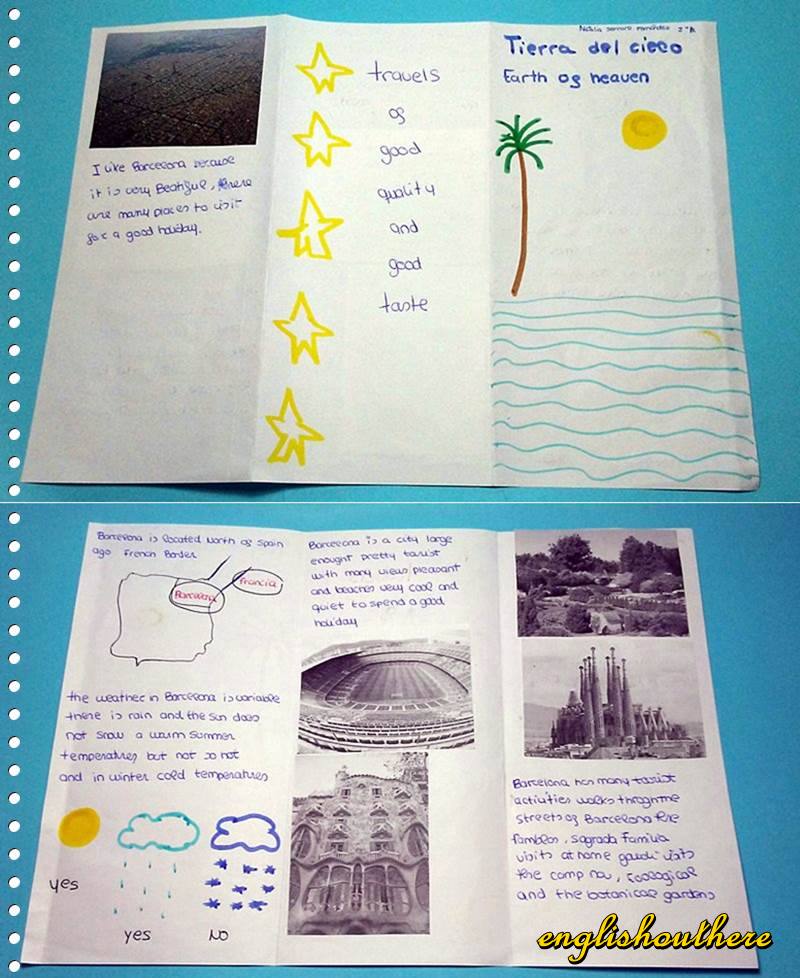 I like Barcelona because
it is very Beatiful, there
are many places to visit
for a good holiday.
travels
of
good
quality
and
good
taste
2ºA
Tierra del cielo
Earth of heaven
Barcelona is located North of Spain
ago French Border
Barcelona
Francia
the weather in Barcelona is variable
there is rain and the sun does
not snow a warm summer
temperatures but not so hot
and in winter cold temperatures
yes
yes
NO
Barcelona is a city large
enought pretty tourist
with many views pleasant
and beaches very cool and
quiet to spend a good
holiday
Barcelona has many tourist
activities walks through the
streets of Barcelona
Sagrada Familia
visits at home gaudi visits
the camp nou, zoological
and the botanical gardens
englishouthere